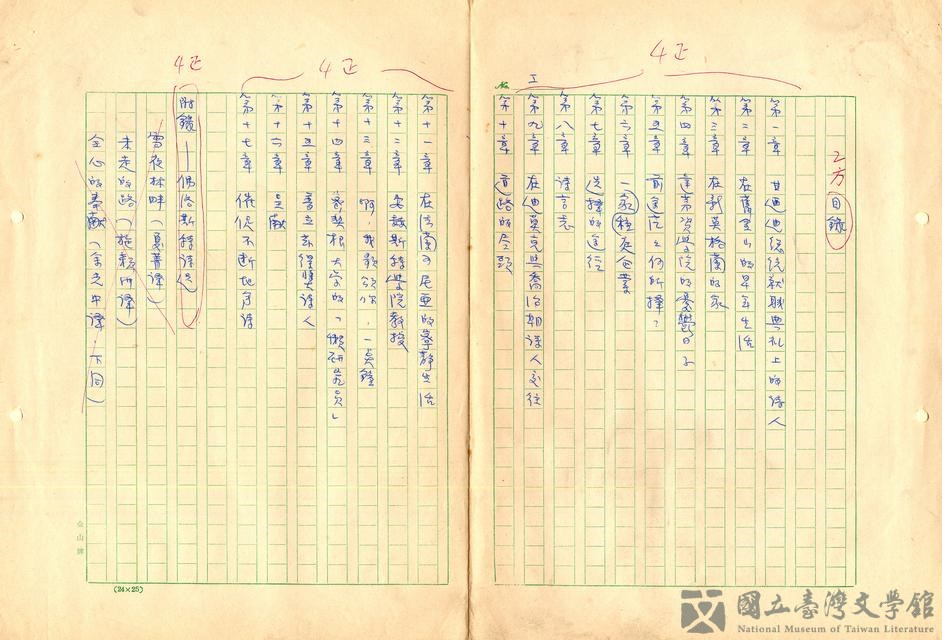 4正
2方
目錄
第一章 甘迺迪總統就職典礼上的詩人
第二章 在舊金山的早年生活
第三章 在新英格蘭的家
第四章 達芳資學院的憂鬱日子
第五章 前途茫茫何所擇?
第六章 一家经庭企業
第七章 選擇的途徑
第八章 詩言志
第九章 在迪莫克與喬治朝詩人交往
第十章 首路的
4正
第十一章 在法蘭可尼亞的寧靜生活
第十二章 安默斯特學院教授
第十三章 啊,我歌頌你,一員鐘
第十四章 密契根大学的「懶研究員」
第十五章 普立茲得獎詩人
第十六章 呈献
第十七章 催促不斷地
4正
附錄—佛洛斯特詩選
雪夜林畔(夏菁譯)
未走的路(施穎洲譯)
全心的奉獻(余光中譯,下同)
金山牌
(24×25)
國立臺灣文學館
National Museum of Taiwan Literature